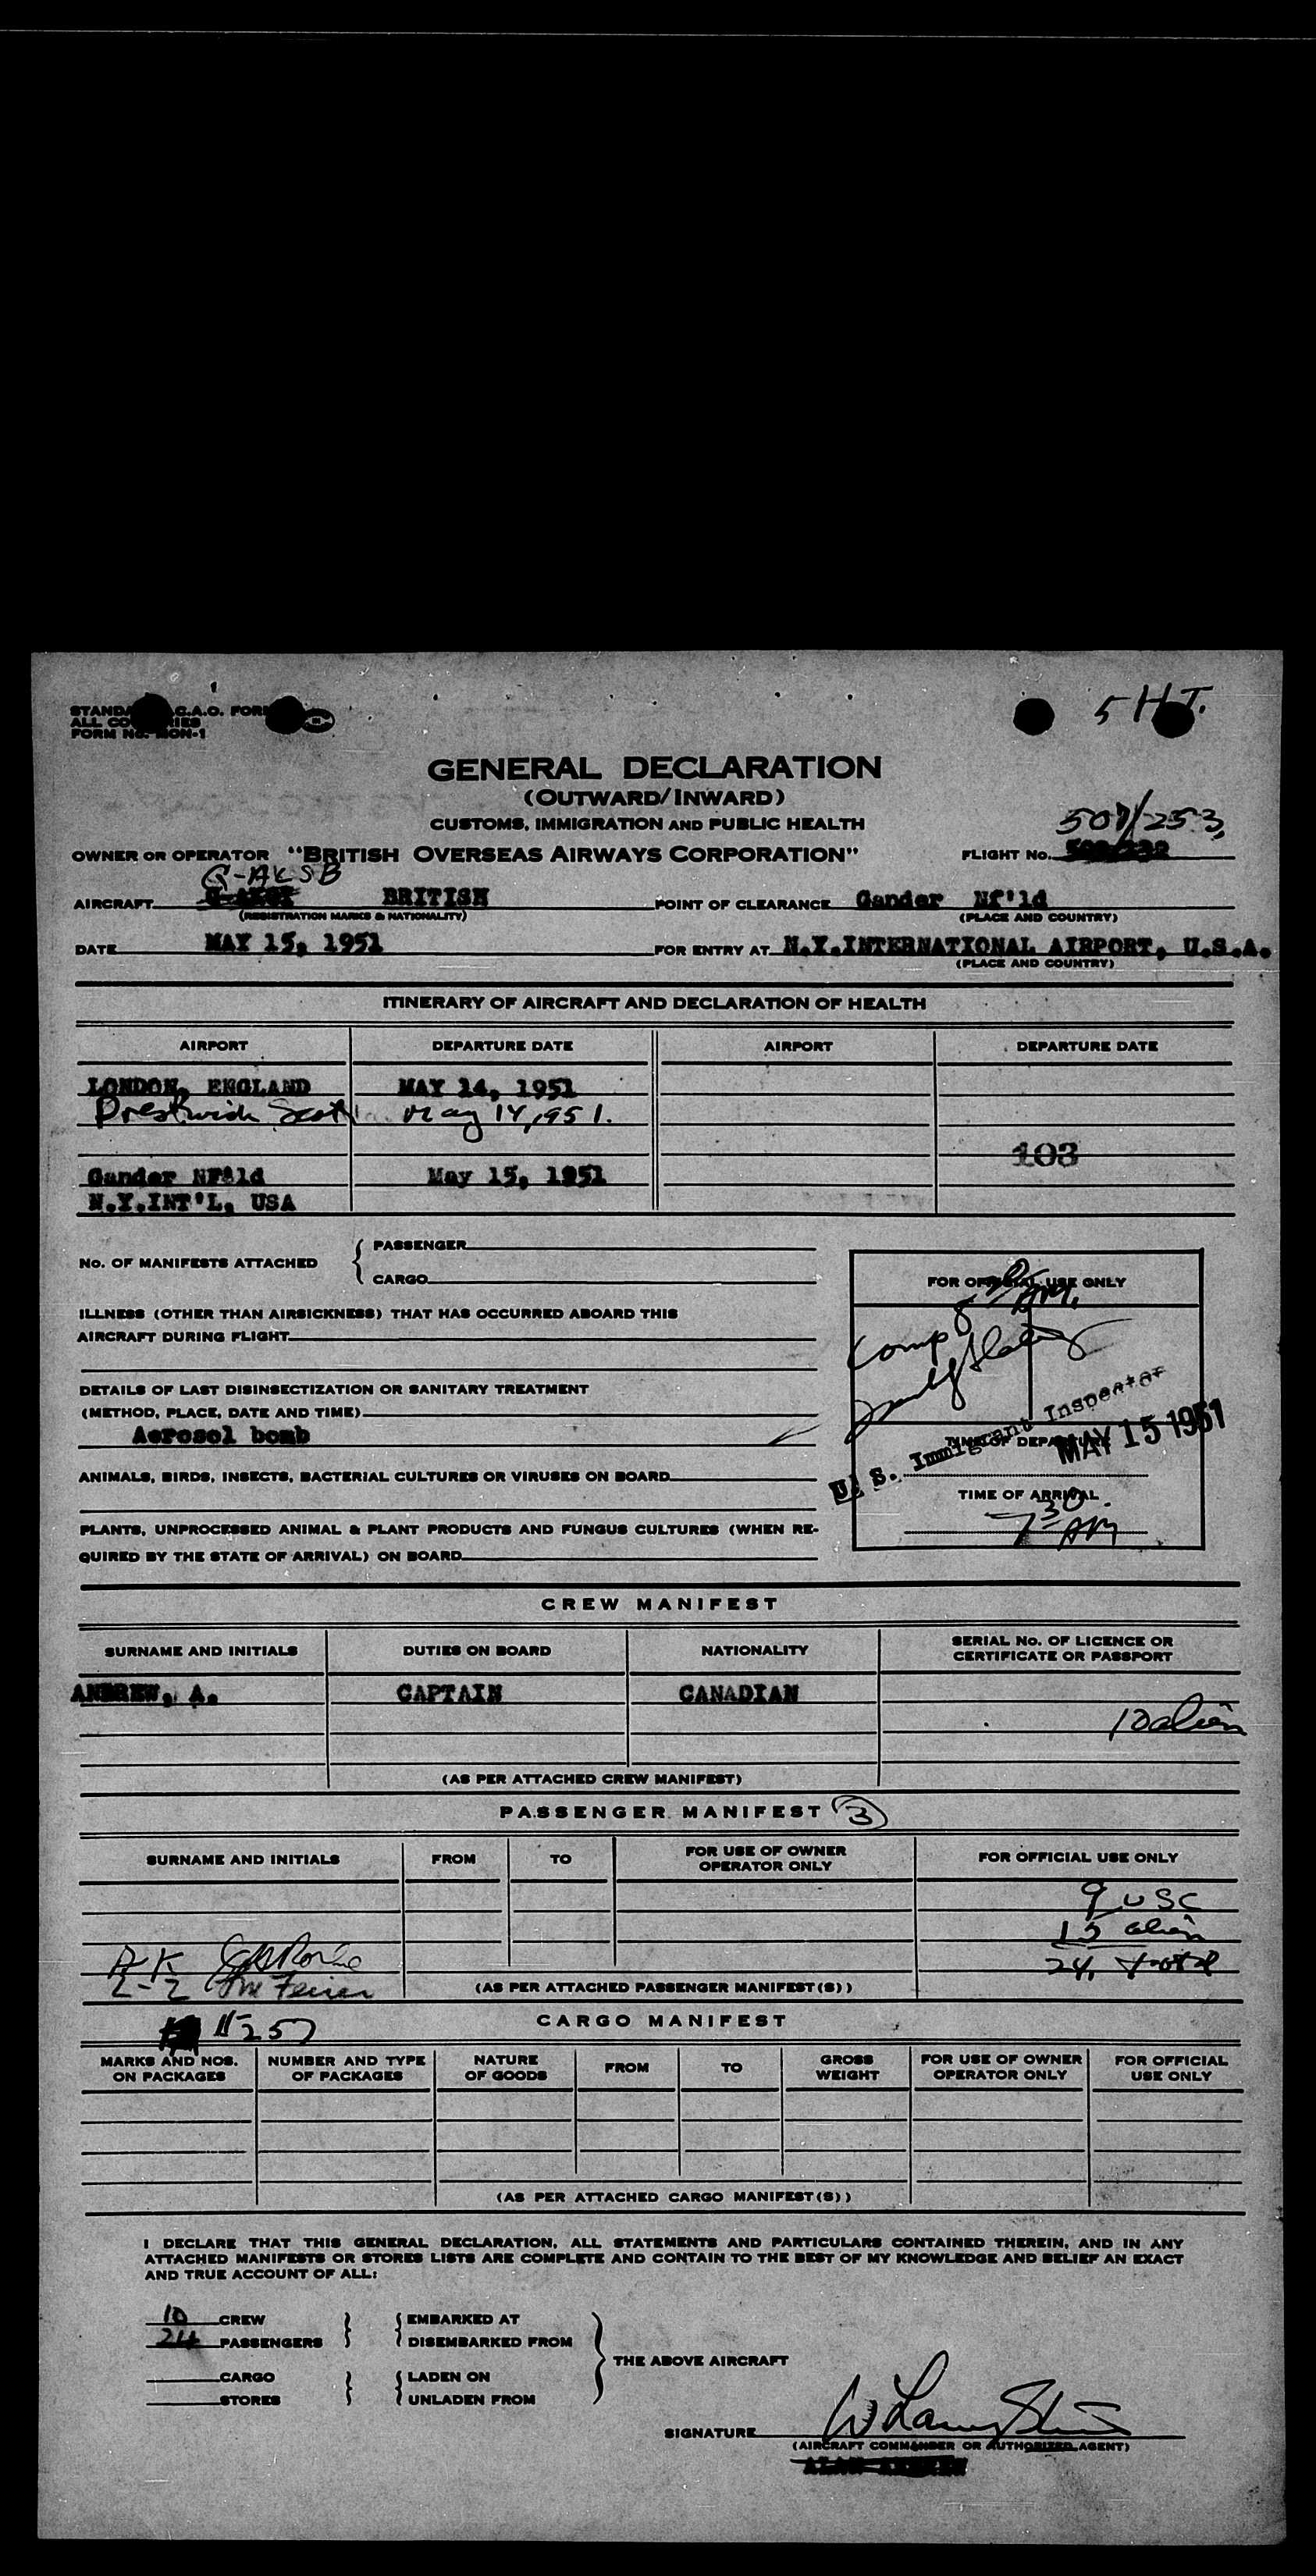 5 H.T.
ALL CO
FORM NO. MON-1
GENERAL DECLARATION
(OUTWARD/INWARD)
CUSTOMS, IMMIGRATION AND PUBLIC HEALTH
507/253
OWNER OR OPERATOR "BRITISH OVERSEAS AIRWAYS CORPORATION" FLIGHT NO.
G-AKSB
AIRCRAFT BRITISH POINT OF CLEARANCE Gander Nf'ld
(REGISTRATION MARKS & NATIONALITY) (PLACE AND COUNTRY)
DATE MAY 15, 1951 FOR ENTRY AT N.Y.INTERNATIONAL AIRPORT, U.S.A.
(PLACE AND COUNTRY)
ITINERARY OF AIRCRAFT AND DECLARATION OF HEALTH
AIRPORT DEPARTURE DATE AIRPORT DEPARTURE DATE
LONDON, ENGLAND MAY 14, 1951
Prestwick Scot May 14, 1951.
103
Gander NF'ld May 15, 1951
N.Y.INT'L, USA
NO. OF MANIFESTS ATTACHED { PASSENGER
CARGO
FOR OFFICIAL USE ONLY
ILLNESS (OTHER THAN AIRSICKNESS) THAT HAS OCCURRED ABOARD THIS
AIRCRAFT DURING FLIGHT
Comp
DETAILS OF LAST DISINSECTIZATION OR SANITARY TREATMENT
(METHOD, PLACE, DATE AND TIME)
Aerosol bomb
U. S. Immigrant Inspector
TIME OF DEPARTURE
MAY 15 1951
ANIMALS, BIRDS, INSECTS, BACTERIAL CULTURES OR VIRUSES ON BOARD
TIME OF ARRIVAL
7 30 AM
PLANTS, UNPROCESSED ANIMAL & PLANT PRODUCTS AND FUNGUS CULTURES (WHEN RE-
QUIRED BY THE STATE OF ARRIVAL) ON BOARD
CREW MANIFEST
SURNAME AND INITIALS DUTIES ON BOARD NATIONALITY SERIAL NO. OF LICENCE OR
CERTIFICATE OR PASSPORT
ANDREW, A. CAPTAIN CANADIAN
10 alien
(AS PER ATTACHED CREW MANIFEST)
PASSENGER MANIFEST 3
SURNAME AND INITIALS FROM TO FOR USE OF OWNER
OPERATOR ONLY FOR OFFICIAL USE ONLY
9 USC
15 alien
24 total
(AS PER ATTACHED PASSENGER MANIFEST(S))
CARGO MANIFEST
MARKS AND NOS.
ON PACKAGES NUMBER AND TYPE
OF PACKAGES NATURE
OF GOODS FROM TO GROSS
WEIGHT FOR USE OF OWNER
OPERATOR ONLY FOR OFFICIAL
USE ONLY
(AS PER ATTACHED CARGO MANIFEST(S))
I DECLARE THAT THIS GENERAL DECLARATION, ALL STATEMENTS AND PARTICULARS CONTAINED THEREIN, AND IN ANY
ATTACHED MANIFESTS OR STORES LISTS ARE COMPLETE AND CONTAIN TO THE BEST OF MY KNOWLEDGE AND BELIEF AN EXACT
AND TRUE ACCOUNT OF ALL:
10 CREW EMBARKED AT
24 PASSENGERS DISEMBARKED FROM
THE ABOVE AIRCRAFT
CARGO LADEN ON
STORES UNLADEN FROM
SIGNATURE
(AIRCRAFT COMMANDER OR AUTHORIZED AGENT)